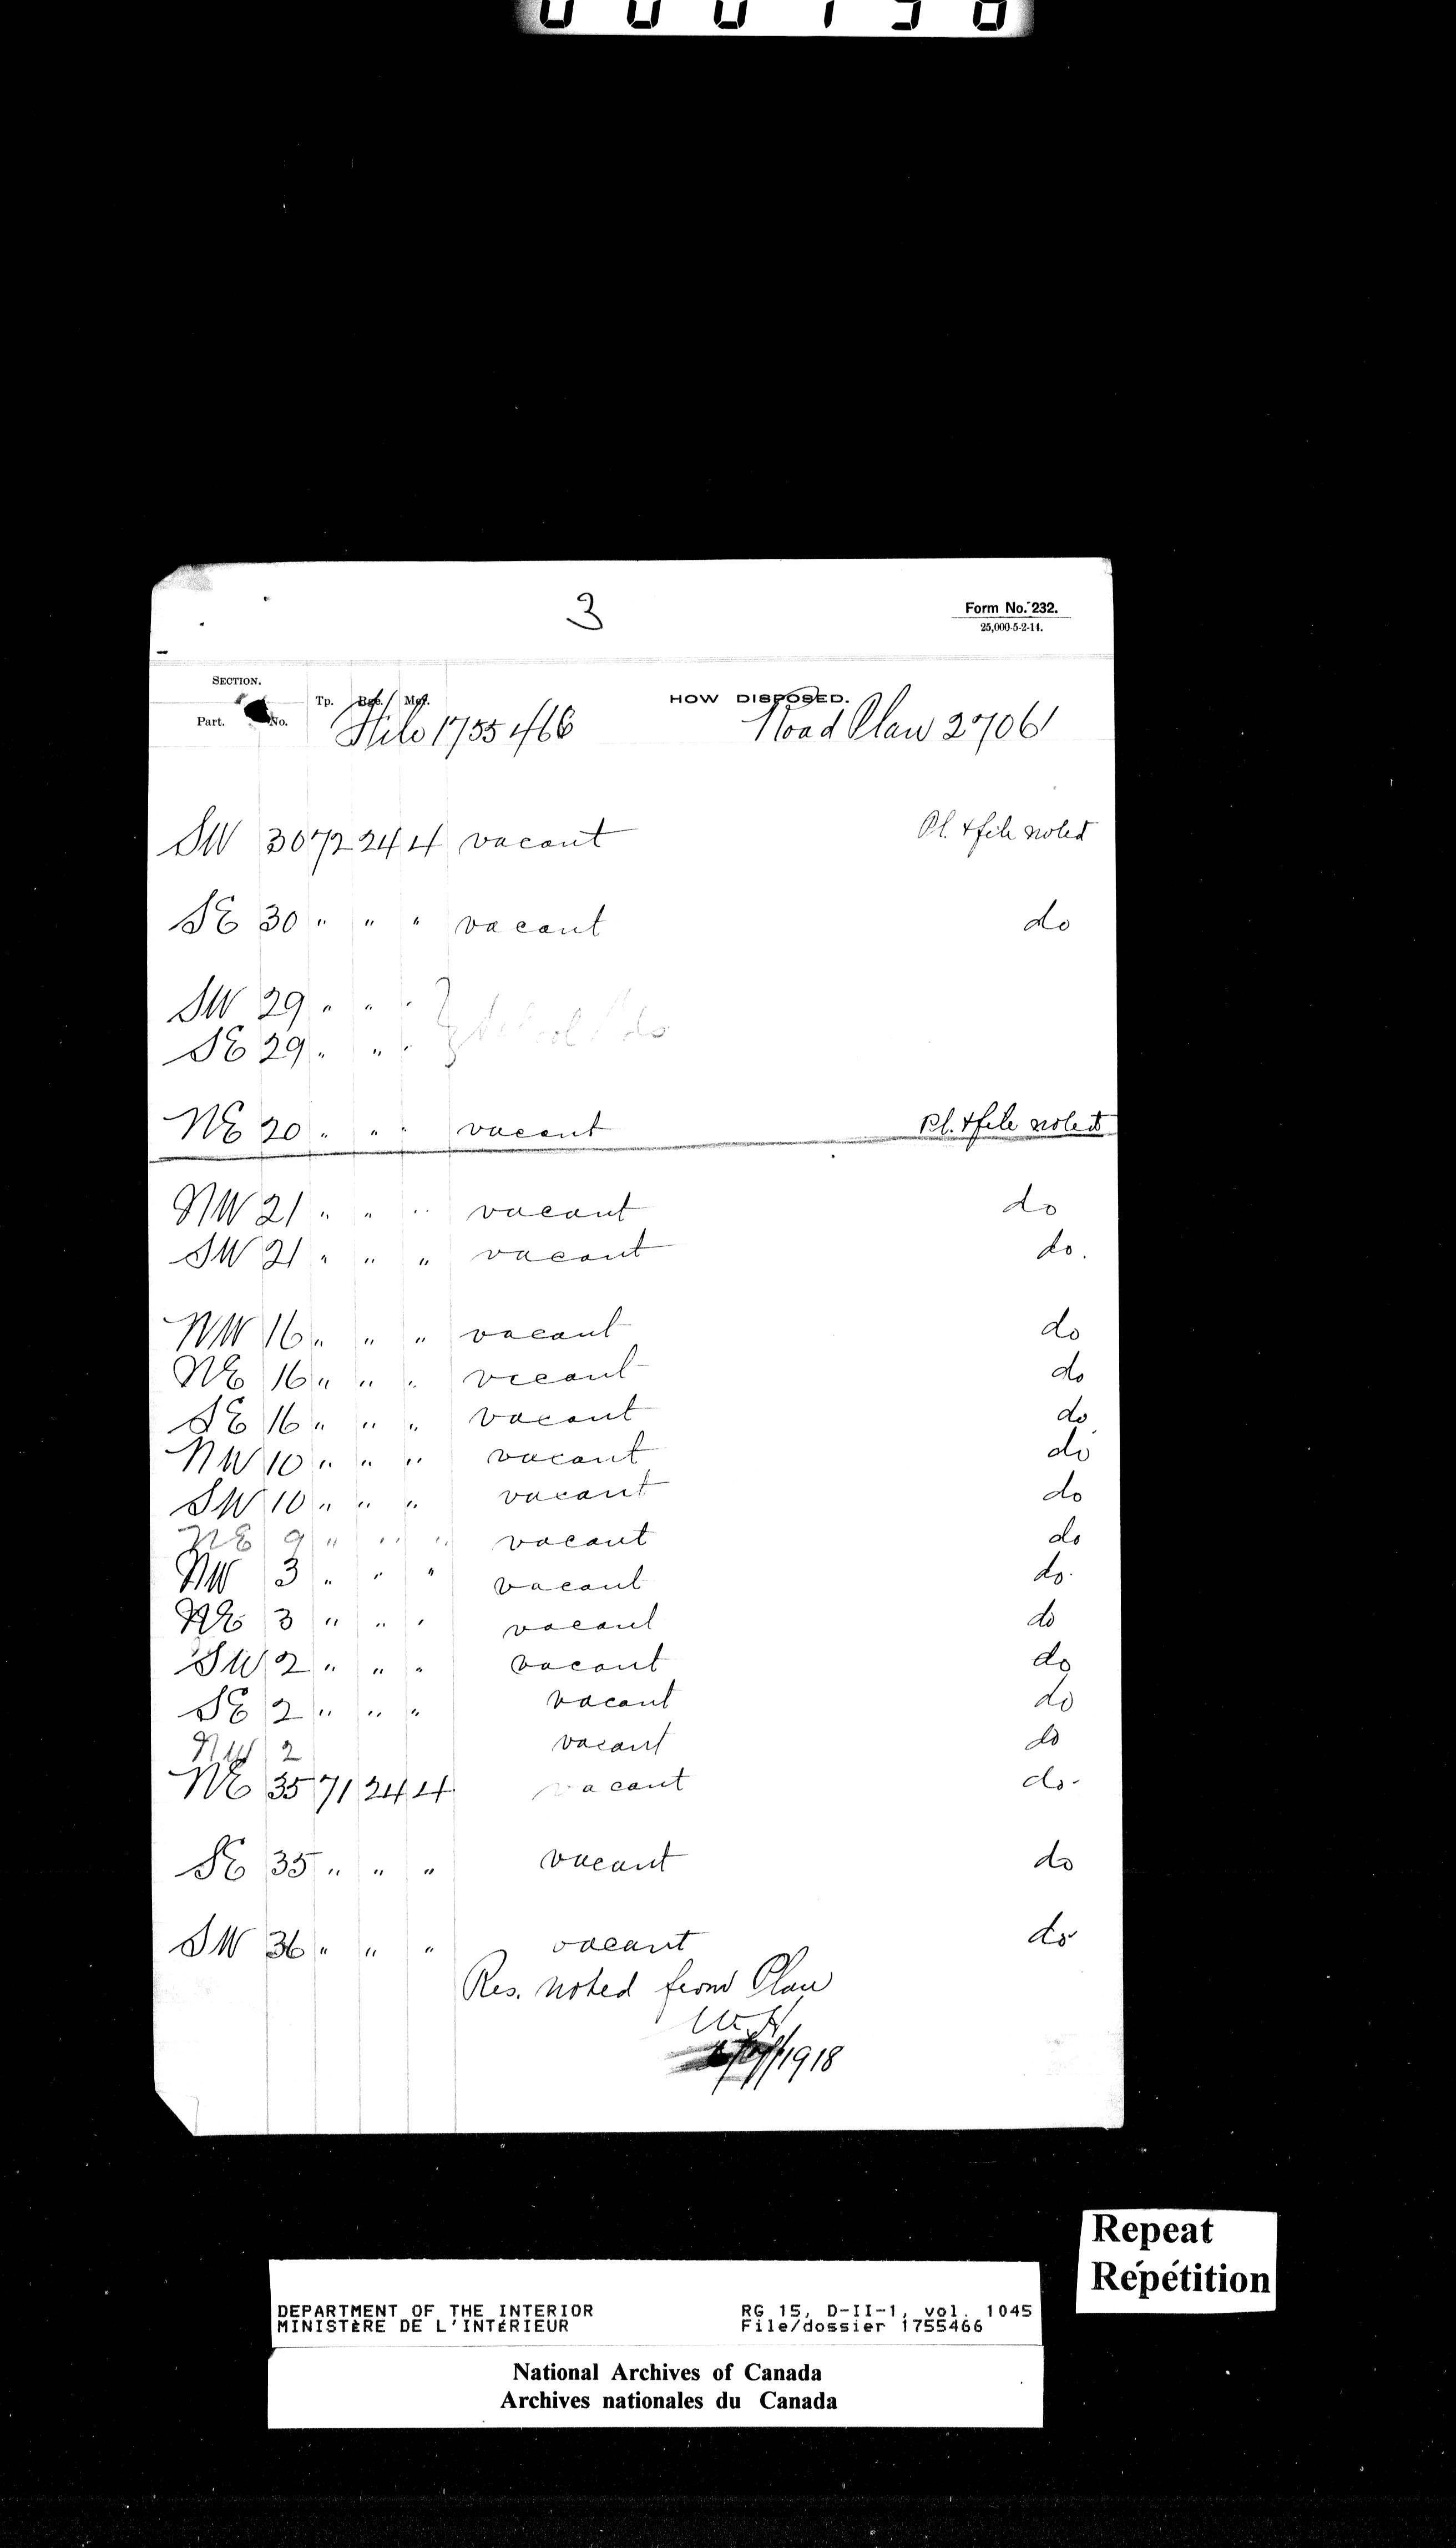 3
Form No. 232.
25,000-5-2-14.
SECTION. Tp. Rge. Mer. HOW DISPOSED.
Part. No.
File 1755466 Road Plan 27061
SW 30 72 24 4 vacant Pl. & file noted
SE 30 " " " vacant do
SW 29 " " "
SE 29 " " " } School lds
NE 20 " " " vacant Pl. & file noted
NW 21 " " " vacant do
SW 21 " " " vacant do.
NW 16 " " " vacant do
NE 16 " " " vacant do
SE 16 " " " vacant do
NW 10 " " " vacant do
SW 10 " " " vacant do
NE 9 " " " vacant do
NW 3 " " " vacant do.
NE 3 " " " vacant do
SW 2 " " " vacant do
SE 2 " " " vacant do
NW 2 vacant do
NE 35 71 24 4 vacant do.
SE 35 " " " vacant do
SW 36 " " " vacant do
Res. noted from Plan
W.H.
1918
Repeat
Répétition
DEPARTMENT OF THE INTERIOR RG 15, D-II-1, vol. 1045
MINISTÈRE DE L'INTÉRIEUR File/dossier 1755466
National Archives of Canada
Archives nationales du Canada